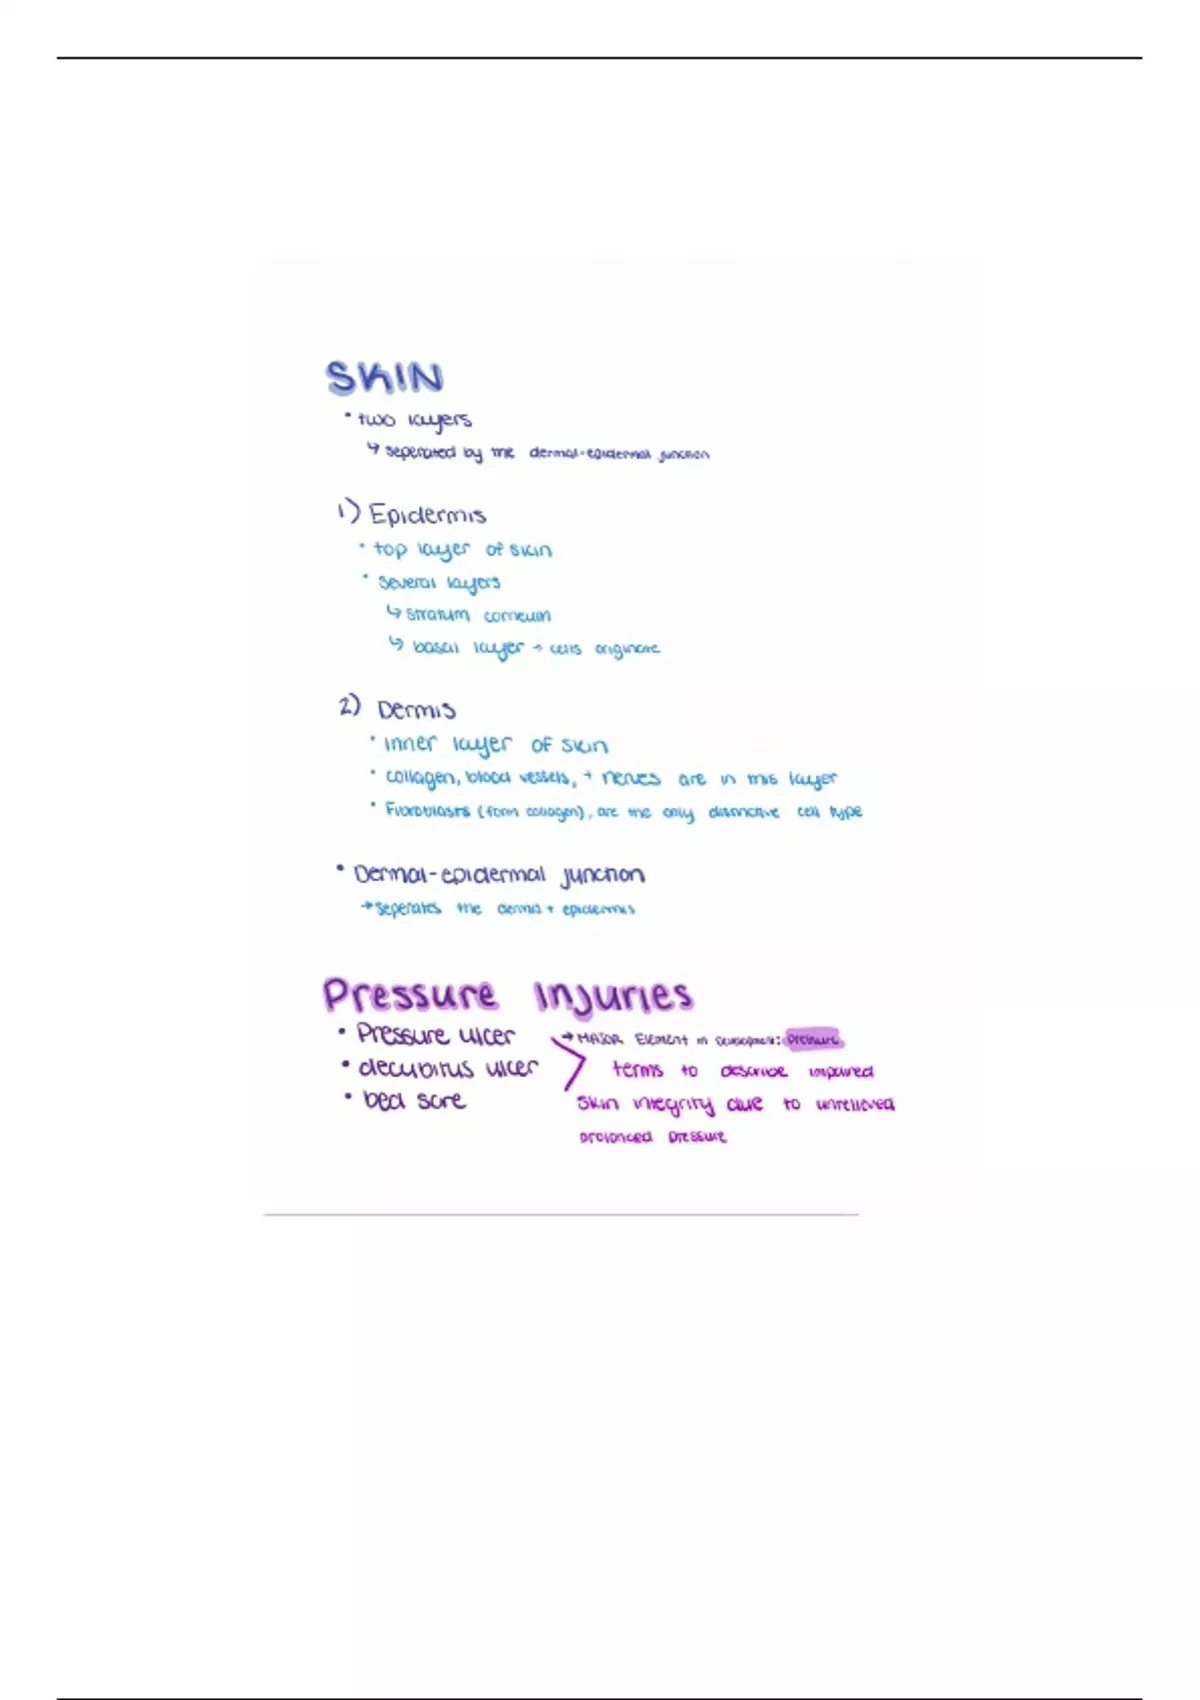 SKIN
• two layers
↳ seperated by the dermal-epidermal junction
1) Epidermis
• top layer of skin
• several layers
↳ stratum corneum
↳ basal layer → cells originate
2) Dermis
• inner layer of skin
• collagen, blood vessels, + nerves are in this layer
• Fibroblasts (form collagen), are the only distinctive cell type
• Dermal-epidermal junction
→ seperates the dermis + epidermis
Pressure Injuries
• Pressure ulcer → MAJOR Element in Development: pressure
• decubitus ulcer terms to describe impaired
• bed sore skin integrity due to unrelieved
prolonged pressure